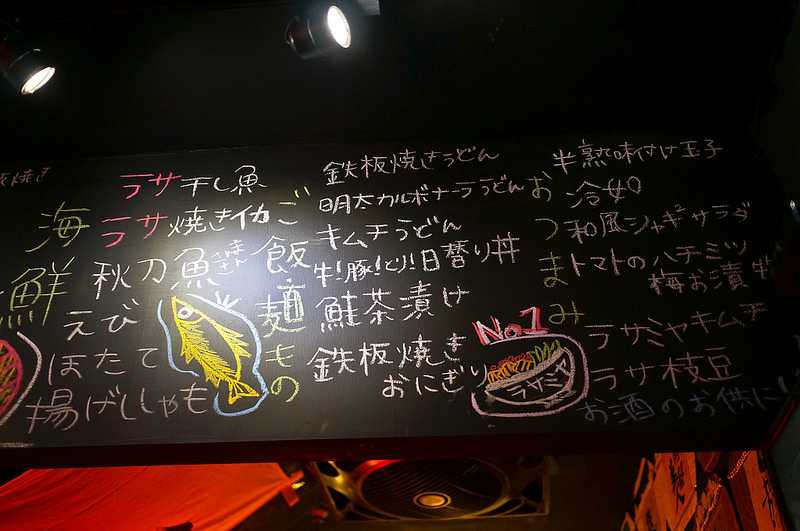 焼き
海鮮
ラサ干し魚
ラサ焼きイカ
秋刀魚
さんま
えび
ほたて
揚げししゃも
ご飯・麺もの
鉄板焼きうどん
明太カルボナーラうどん
キムチうどん
牛!豚!とり!日替り丼
鮭茶漬け
鉄板焼き
おにぎり
No.1
ラサミヤ
おつまみ
半熟味付け玉子
冷奴
和風シャキサラダ
トマトのハチミツ
梅お漬け
ラサミヤキムチ
ラサ枝豆
お酒のお供に!